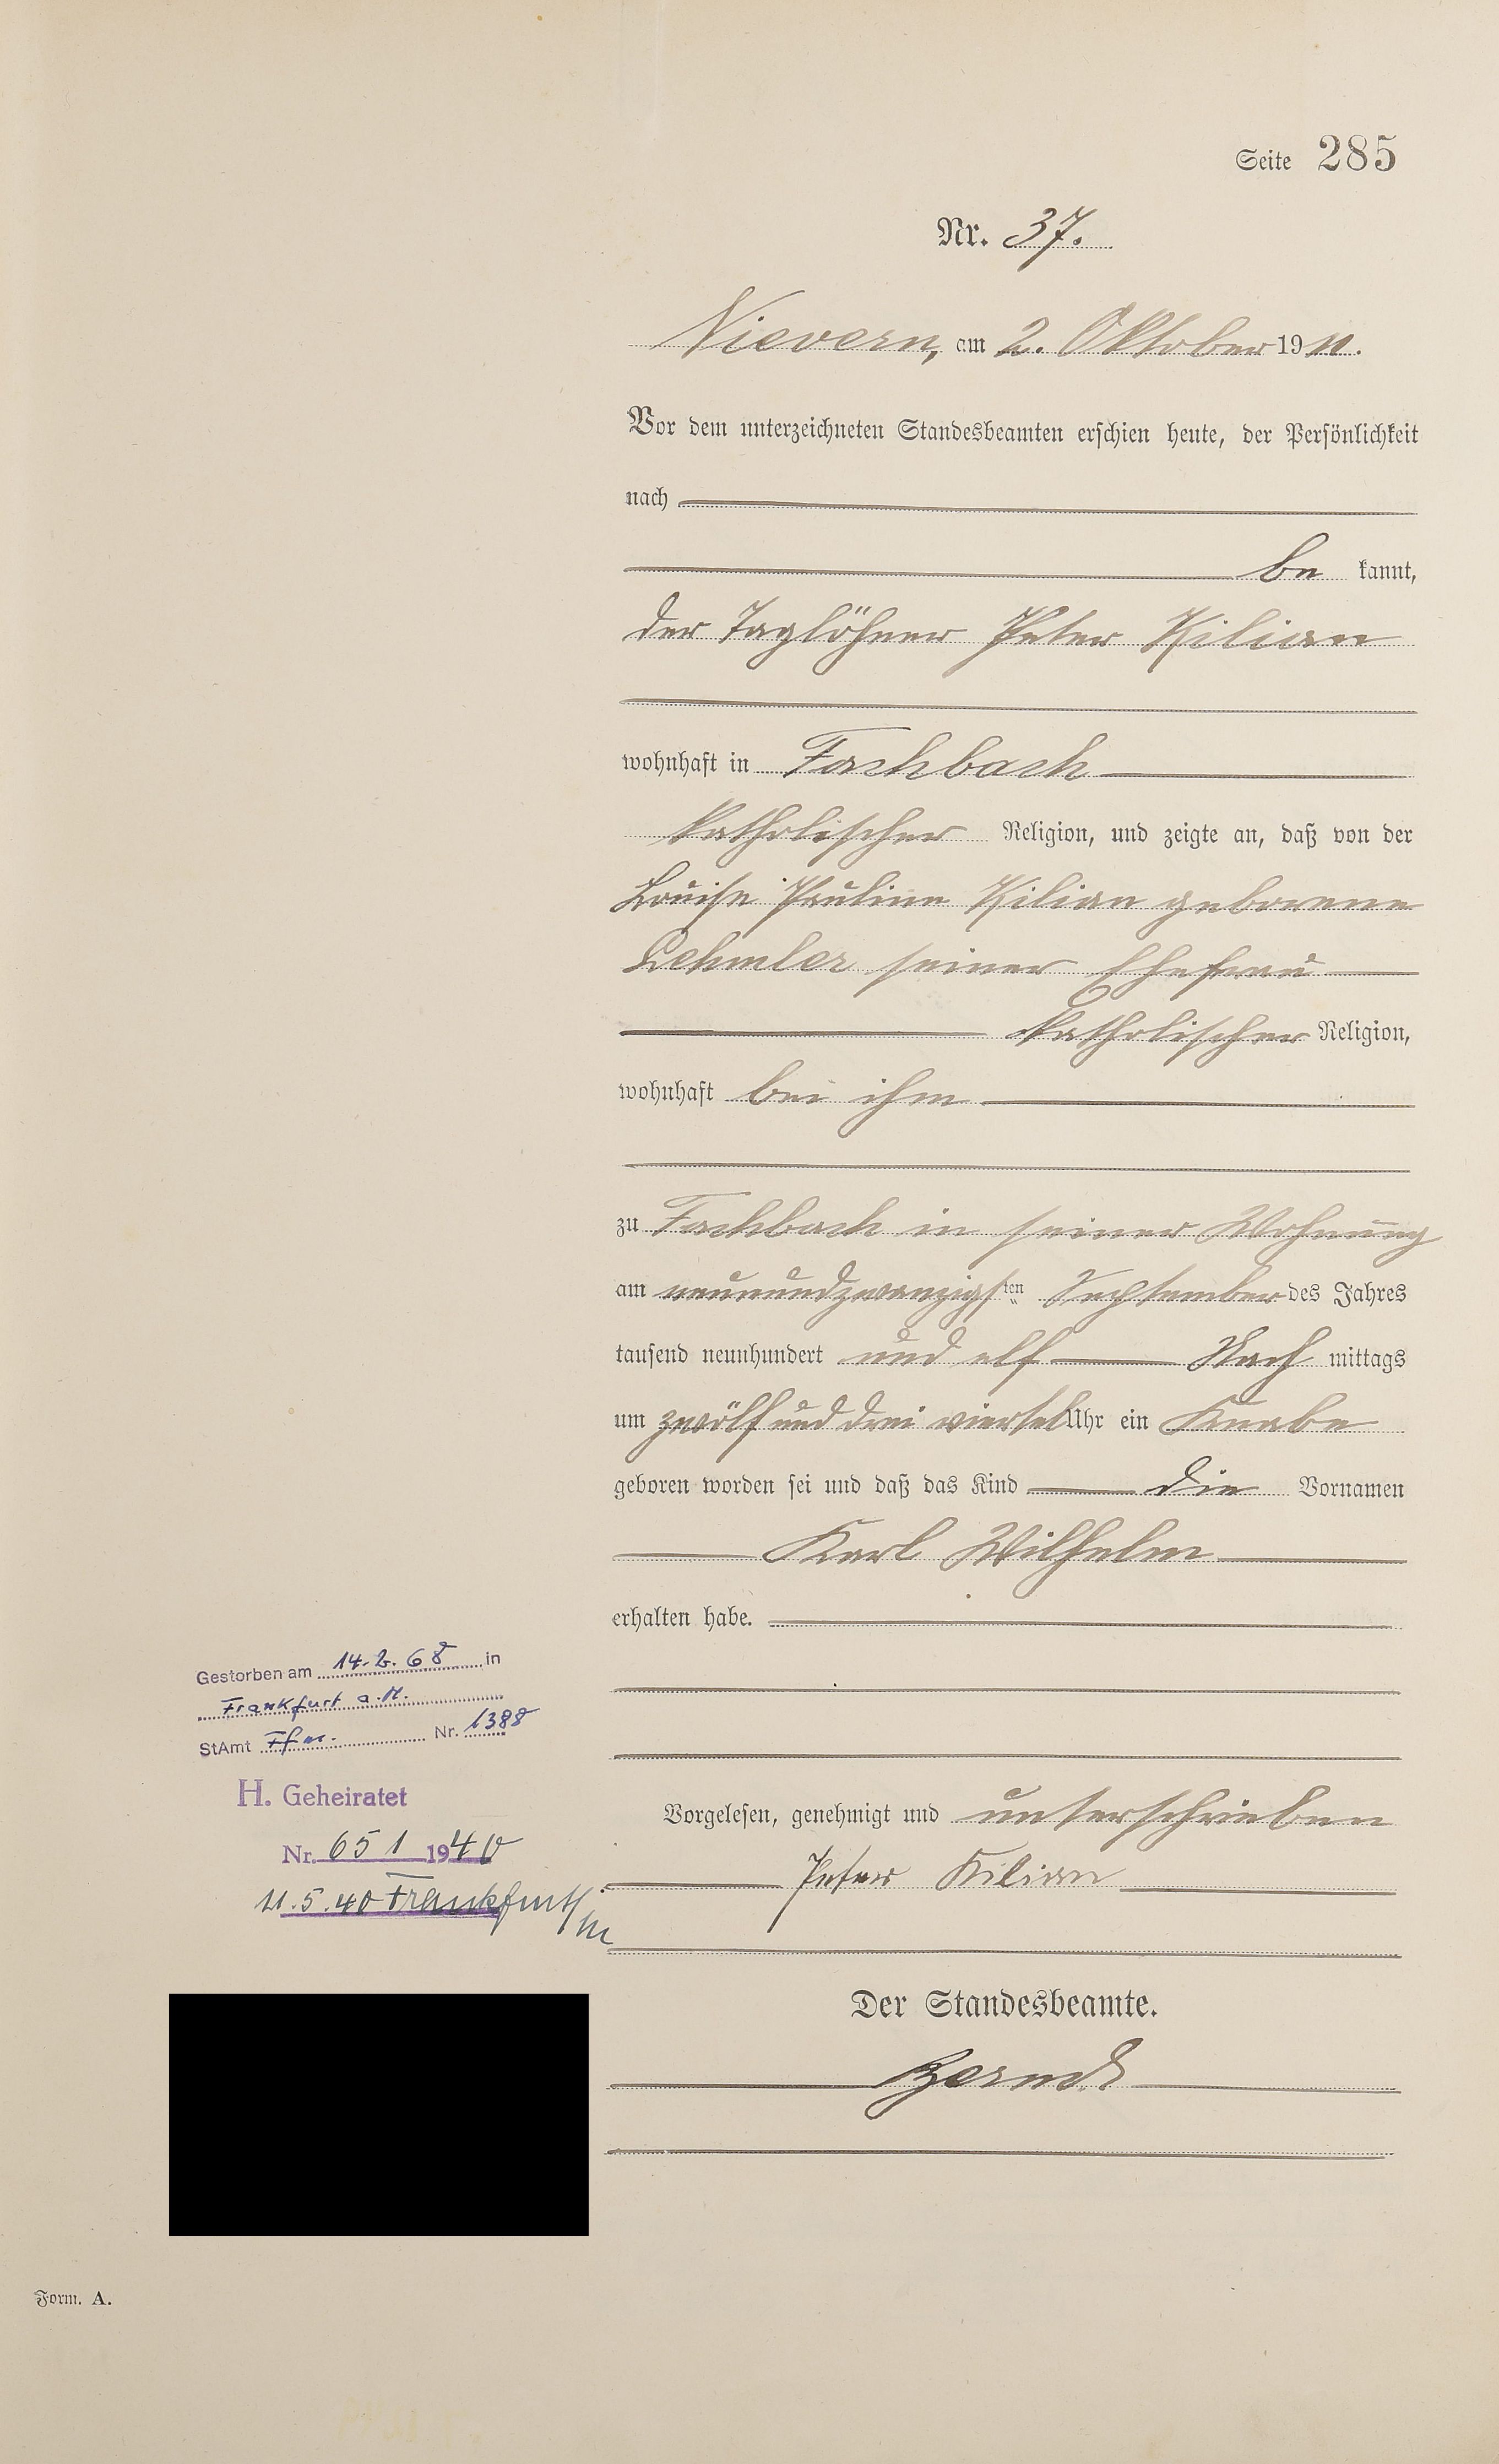 Seite 285
Nr. 37.
Nievern, am 2. Oktober 1911.
Vor dem unterzeichneten Standesbeamten erschien heute, der Persönlichkeit
nach
be kannt,
der Taglöhner Peter Kilian
wohnhaft in Fachbach
katholischer Religion, und zeigte an, daß von der
Louise Pauline Kilian geborene
Lehmler seiner Ehefrau
katholischer Religion,
wohnhaft bei ihm
zu Fachbach in seiner Wohnung
am neunundzwanzigsten September des Jahres
tausend neunhundert und elf Nach mittags
um zwölf und drei viertel Uhr ein Knabe
geboren worden sei und daß das Kind die Vornamen
Karl Wilhelm
erhalten habe.
Gestorben am 14.2.68 in
Frankfurt a.M.
StAmt Ffm. Nr. 1388
H. Geheiratet
Nr. 651 1940
11.5.40 Frankfurt/M
Vorgelesen, genehmigt und unterschrieben
Peter Kilian
Der Standesbeamte.
Form. A.